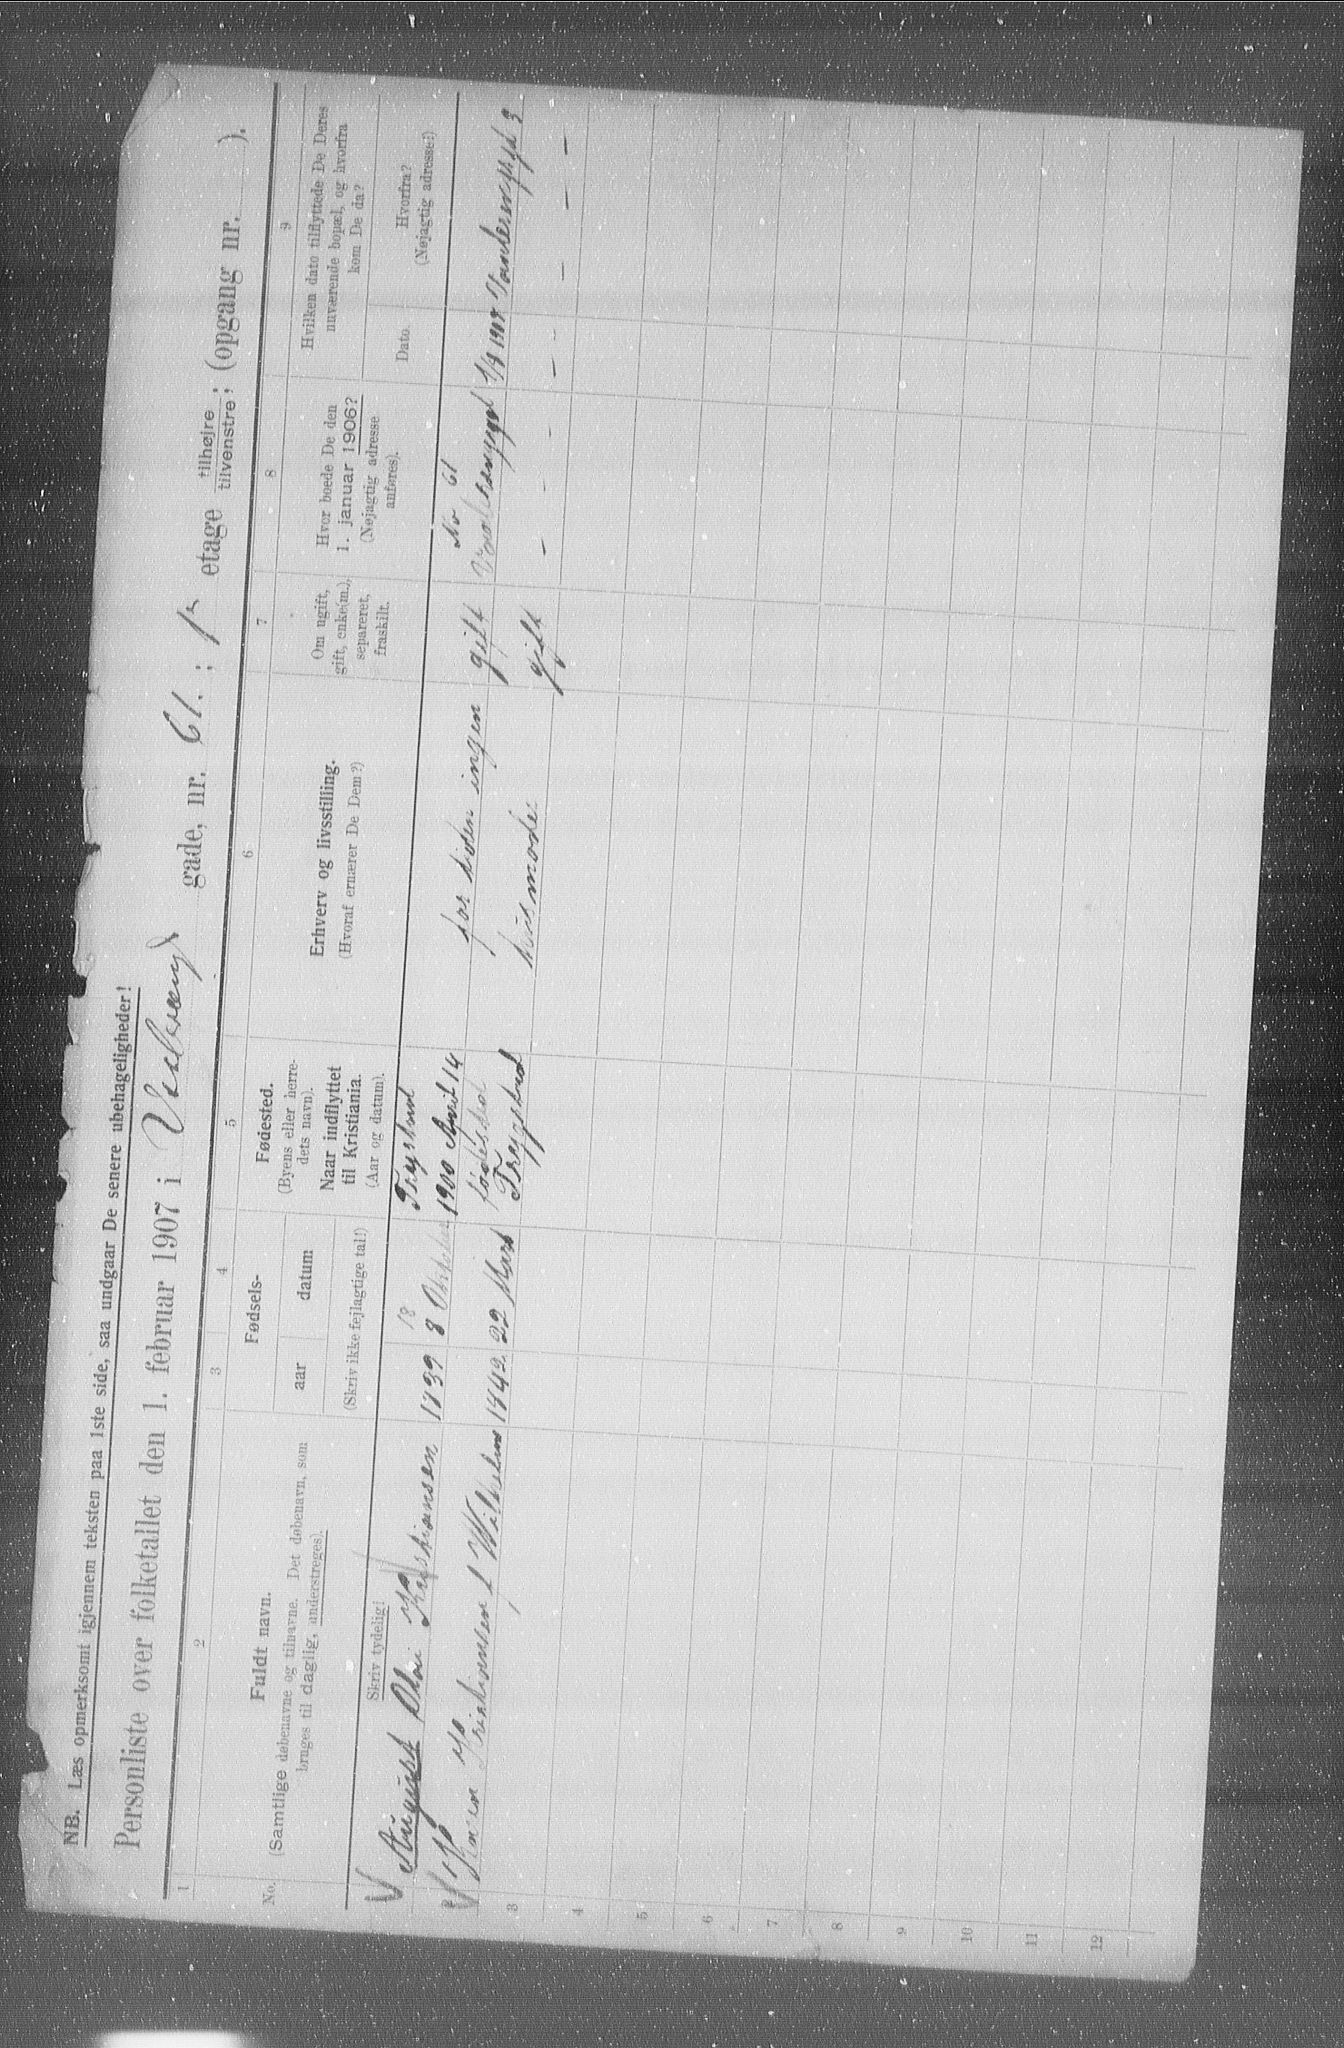 NB. Læs opmerksomt igjennem teksten paa 1ste side, saa undgaar De senere ubehageligheder!
Personliste over folketallet den 1. februar 1907 i gade, nr. 61. ; 1 etage tilhøjre tilvenstre; (opgang nr. ).
1 2 3 4 5 6 7 8 9
No.
Fuldt navn.
(Samtlige døbenavne og tilnavne. Det døbenavn, som
bruges til daglig, understreges).
Skriv tydelig!
Fødsels-
aar datum
(Skriv ikke fejlagtige tal!)
Fødested.
(Byens eller herre-
dets navn).
Naar indflyttet
til Kristiania.
(Aar og datum).
Erhverv og livsstilling.
(Hvoraf ernærer De Dem?)
Om ugift,
gift, enke(m.),
separeret,
fraskilt.
Hvor boede De den
1. januar 1906?
(Nøjagtig adresse
anføres).
Hvilken dato tilflyttede De Deres
nuværende bopæl, og hvorfra
kom De da?
Dato.
Hvorfra?
(Nøjagtig adresse!)
August Olai Kristiansen 1839 18 8 Oktober
Trystad
1900 April 14
for tiden ingen gift
No 61
Kristiansen f Wilhelms 1842 22 Mars
fødested
Trygstad
husmoder gift - - - - - - - -
3
4
5
6
7
8
9
10
11
12